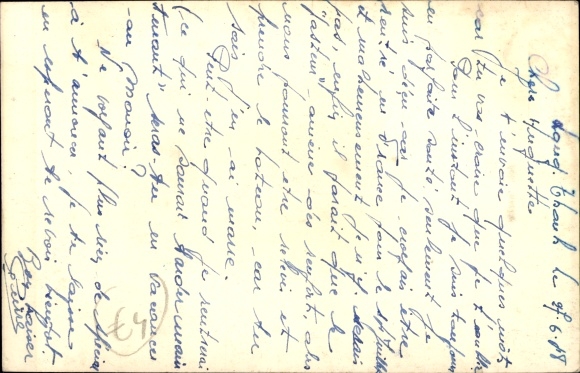 le 27.6.58
Chère Huguette
Je t'envoie quelques mots
car tu vas croire que je t'oublie
Pour l'instant je suis toujours
en parfaite santé seulement je
suis déçu car je croyais être
rentré en France pour le 14 juillet
et malheureusement je n'y serais
pas, enfin il parait que le
"Pasteur" amène des renforts, alors
nous pourront être relevé et
prendre le bateau, car tu
sais j'en ai marre.
Peut-être quand je rentrerai
(ce qui ne saurait tarder main
tenant) seras-tu en vacances
au
Ne voyant plus rien de spécial
à t'annoncer, je te laisse
en espérant te revoir bientôt
Bons Baiser
Pierre